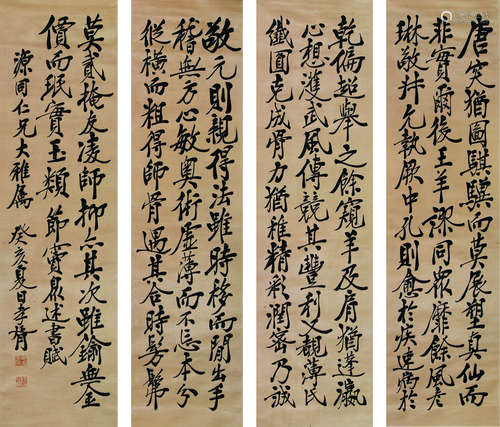 唐突猶圖騏驥而莫展塑真仙而
非實爾後王羊繆同眾靡餘風彥
琳敬并允執厥中孔則愈於疾速病於
乾偏超舉之餘窺羊及肩猶蓬瀛
心想進武風傳競其豐利又觀薄氏
纖圓克成骨力猶稚精彩潤密乃誠
敬元則親得法雖時移而間出手
稽無方心敏奧術虛薄而不忘本分
縱橫而粗得師骨遇其合時髣髴
莫貳掩庾凌師抑亦其次雖鍮與金
價而珉實玉類 節竇臮述書賦
源同仁兄大雅属 癸亥夏日孝胥